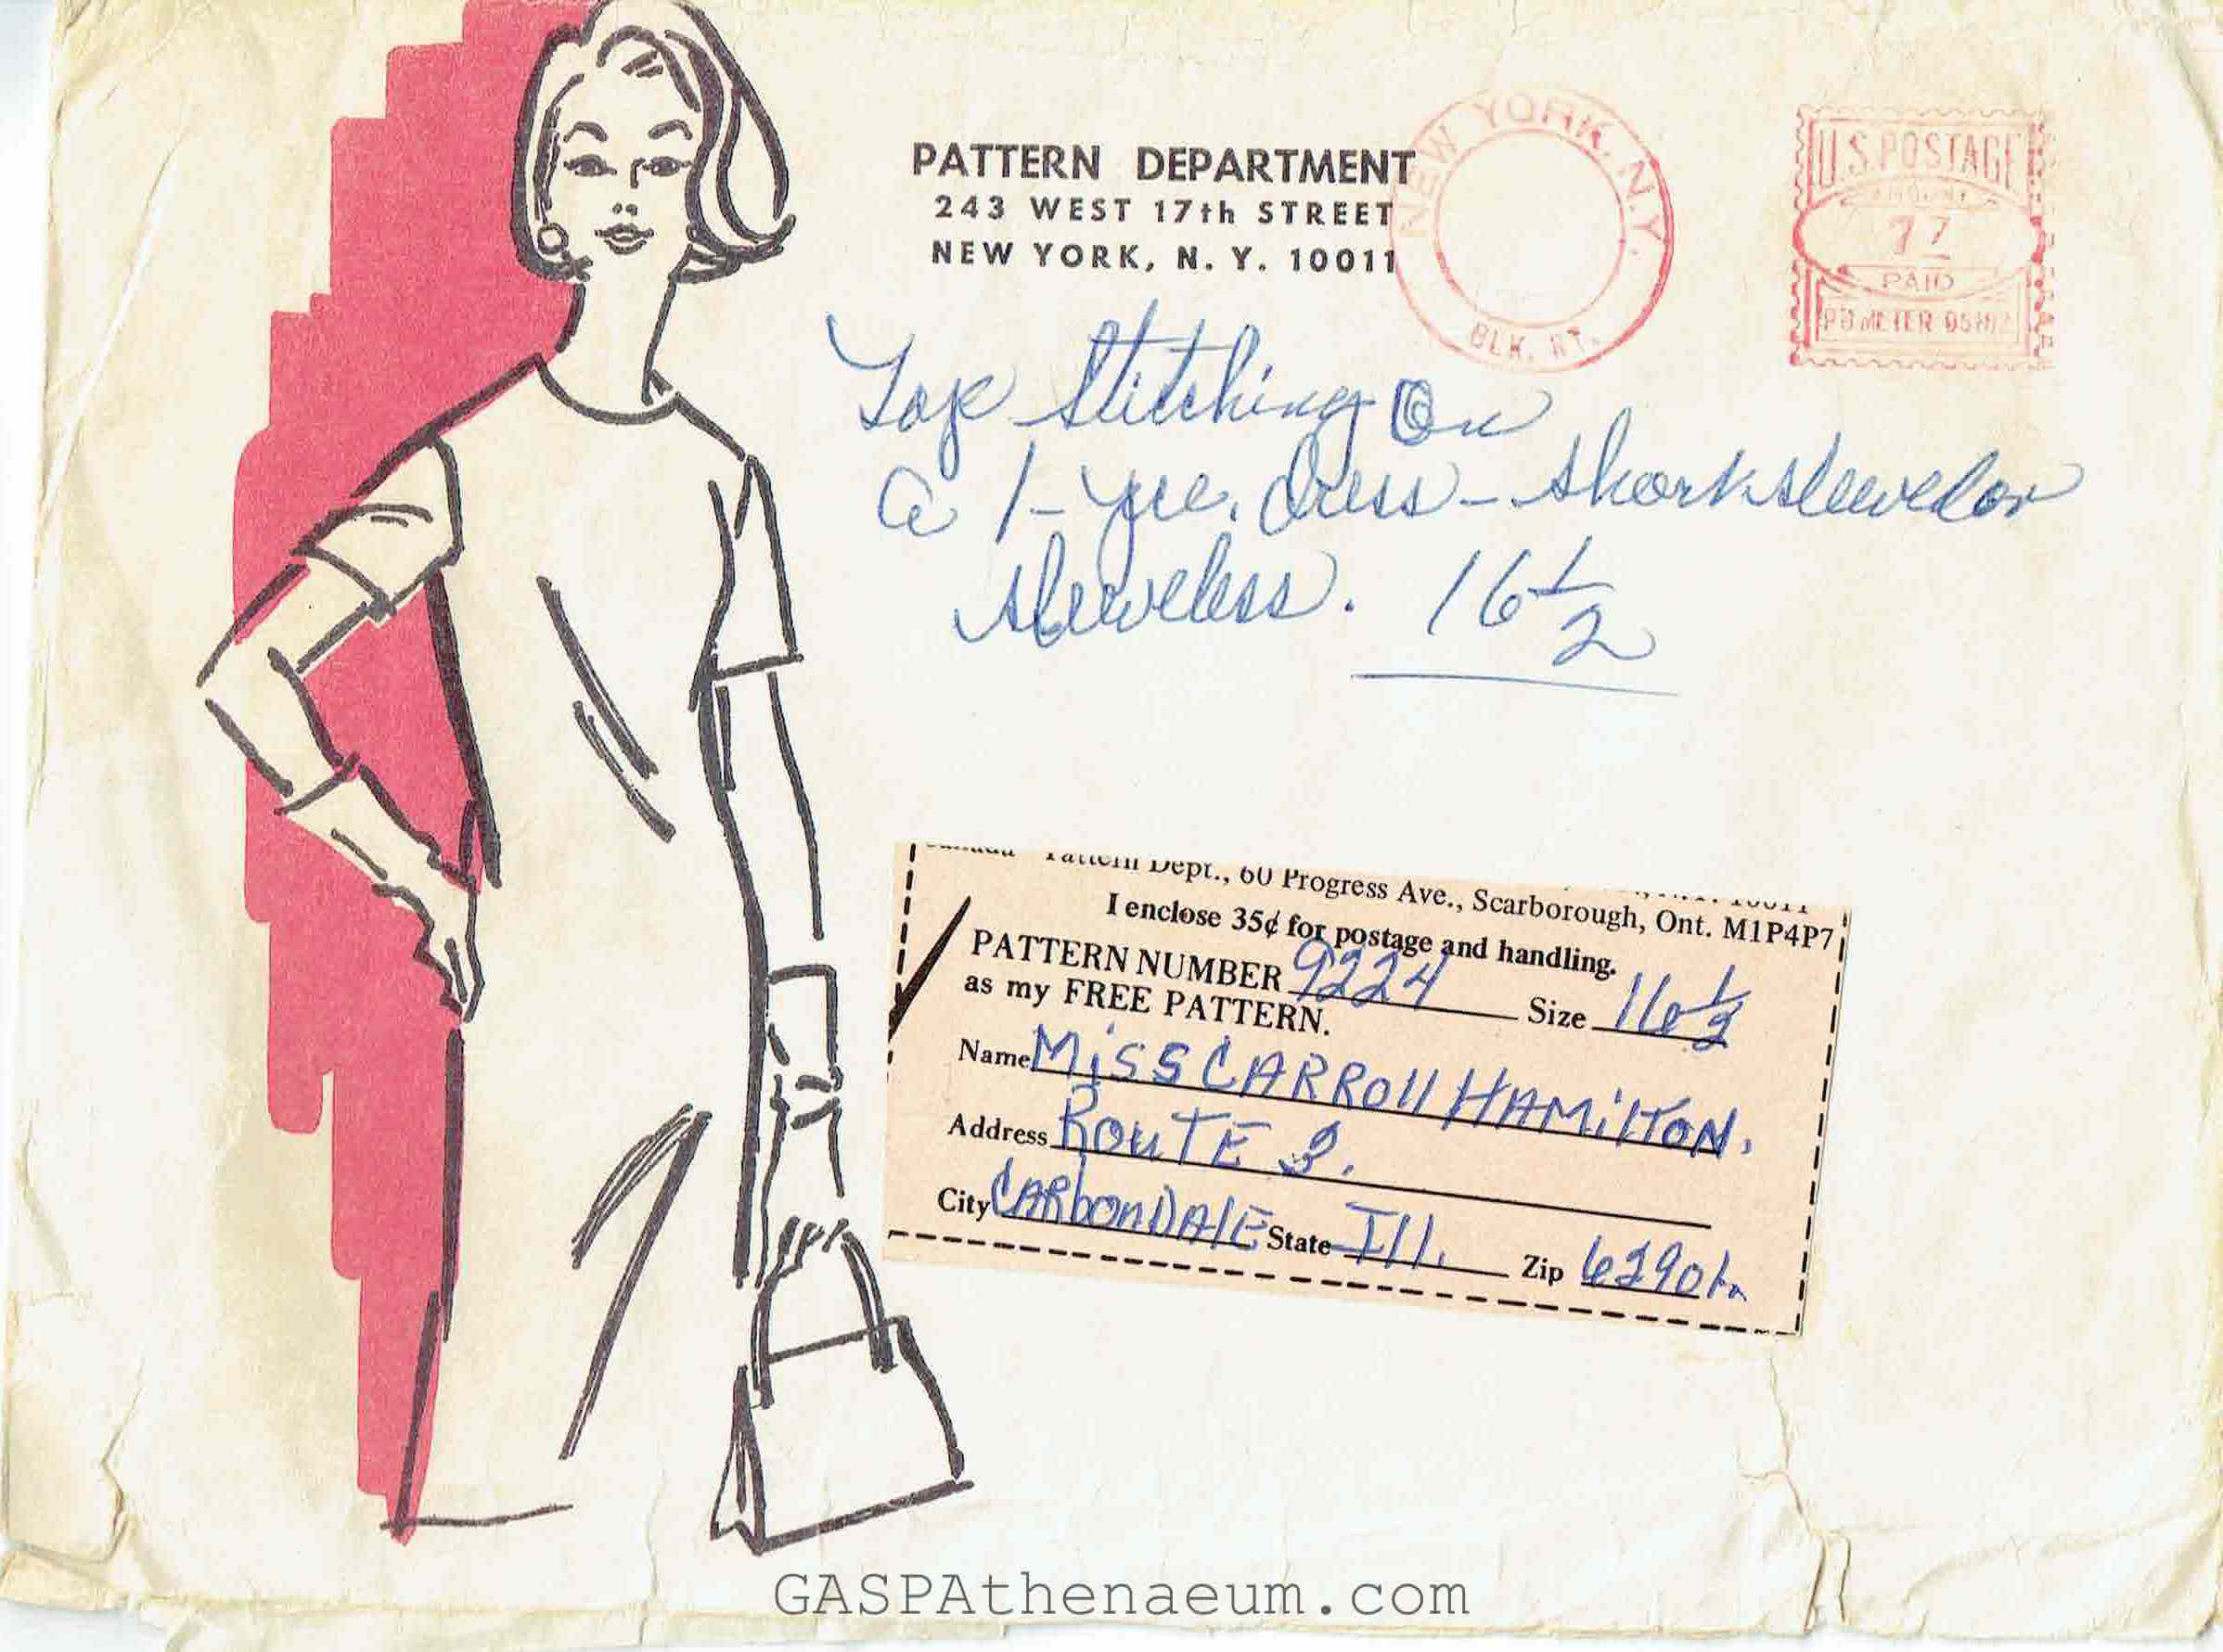 PATTERN DEPARTMENT
243 WEST 17th STREET
NEW YORK, N. Y. 10011
NEW YORK, N.Y.
BLK. RT.
U.S. POSTAGE
77
PAID
PB METER
Top Stitching On
a 1-pce. dress - short sleeve or
sleeveless. 16 1/2
Pattern Dept., 60 Progress Ave., Scarborough, Ont. M1P4P7
I enclose 35¢ for postage and handling.
PATTERN NUMBER 9224 Size 16 1/2
as my FREE PATTERN.
Name MiSS CARROll HAMilTON.
Address ROUTE
City CARbONDAlE State Ill. Zip 62901
GASPAthenaeum.com